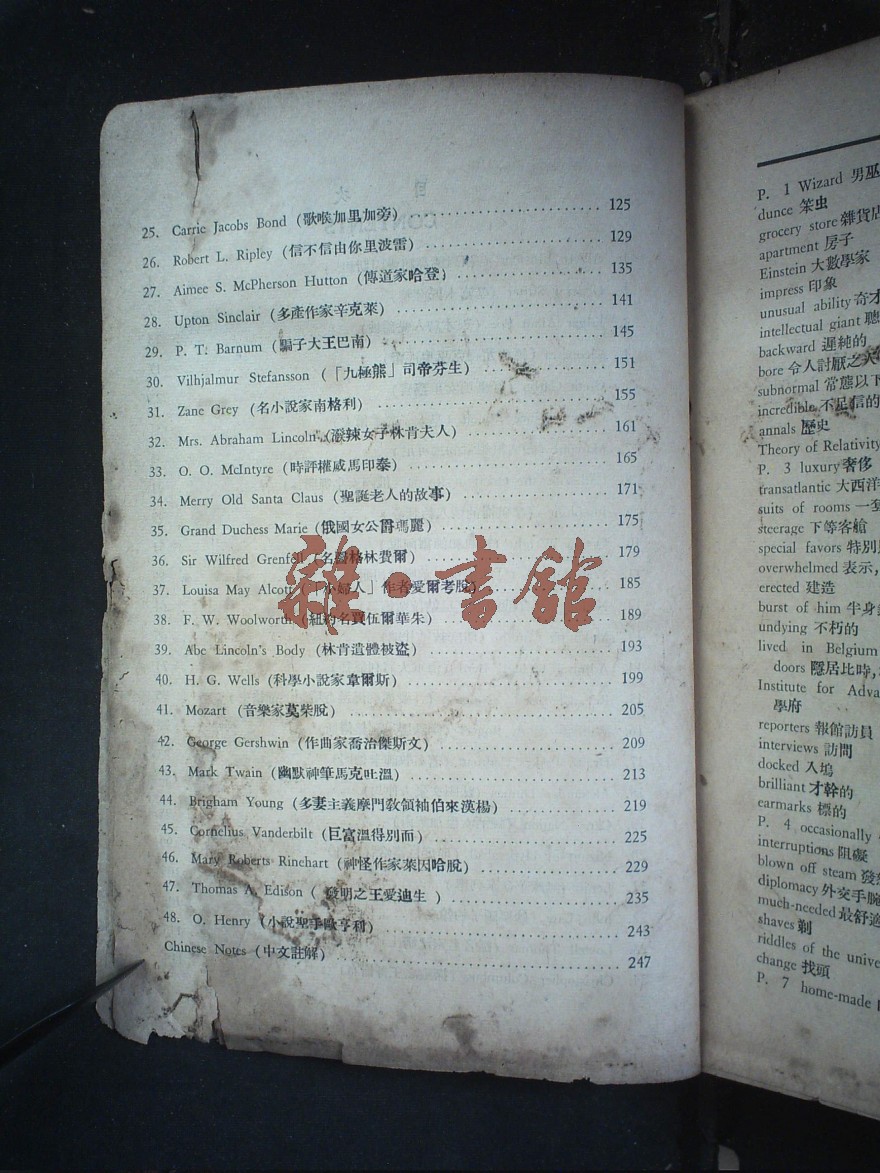 25. Carrie Jacobs Bond (歌喉加里加旁) 125
26. Robert L. Ripley (信不信由你里波雷) 129
27. Aimee S. McPherson Hutton (傳道家哈登) 135
28. Upton Sinclair (多產作家辛克萊) 141
29. P. T. Barnum (騙子大王巴南) 145
30. Vilhjalmur Stefansson (「九極熊」司帝芬生) 151
31. Zane Grey (名小說家南格利) 155
32. Mrs. Abraham Lincoln (潑辣女子林肯夫人) 161
33. O. O. McIntyre (時評權威馬印泰) 165
34. Merry Old Santa Claus (聖誕老人的故事) 171
35. Grand Duchess Marie (俄國女公爵瑪麗) 175
36. Sir Wilfred Grenfell (名醫格林費爾) 179
37. Louisa May Alcott (「小婦人」作者愛爾考脫) 185
38. F. W. Woolworth (紐約名賈伍爾華朱) 189
39. Abe Lincoln's Body (林肯遺體被盜) 193
40. H. G. Wells (科學小說家韋爾斯) 199
41. Mozart (音樂家莫柴脫) 205
42. George Gershwin (作曲家喬治傑斯文) 209
43. Mark Twain (幽默神筆馬克吐溫) 213
44. Brigham Young (多妻主義摩門教領袖伯來漢楊) 219
45. Cornelius Vanderbilt (巨富溫得別而) 225
46. Mary Roberts Rinehart (神怪作家萊因哈脫) 229
47. Thomas A. Edison ( 發明之王愛迪生 ) 235
48. O. Henry (小說聖手歐亨利) 243
Chinese Notes (中文註解) 247
雜·書館
P. 1 Wizard 男巫
dunce 笨虫
grocery store 雜貨店
apartment 房子
Einstein 大數學家
impress 印象
unusual ability 奇才
intellectual giant 聰
backward 遲純的
bore 令人討厭之人
subnormal 常態以下
incredible 不足信的
annals 歷史
Theory of Relativity
P. 3 luxury 奢侈
transatlantic 大西洋
suits of rooms 一套
steerage 下等客艙
special favors 特別
overwhelmed 表示,
erected 建造
burst of him 半身
undying 不朽的
lived in Belgium
doors 隱居比時,
Institute for Adva
學府
reporters 報館訪員
interviews 訪問
docked 入塢
brilliant 才幹的
earmarks 標的
P. 4 occasionally
interruptions 阻礙
blown off steam 發
diplomacy 外交手腕
much-needed 最舒適
shaves 剃
riddles of the unive
change 找頭
P. 7 home-made